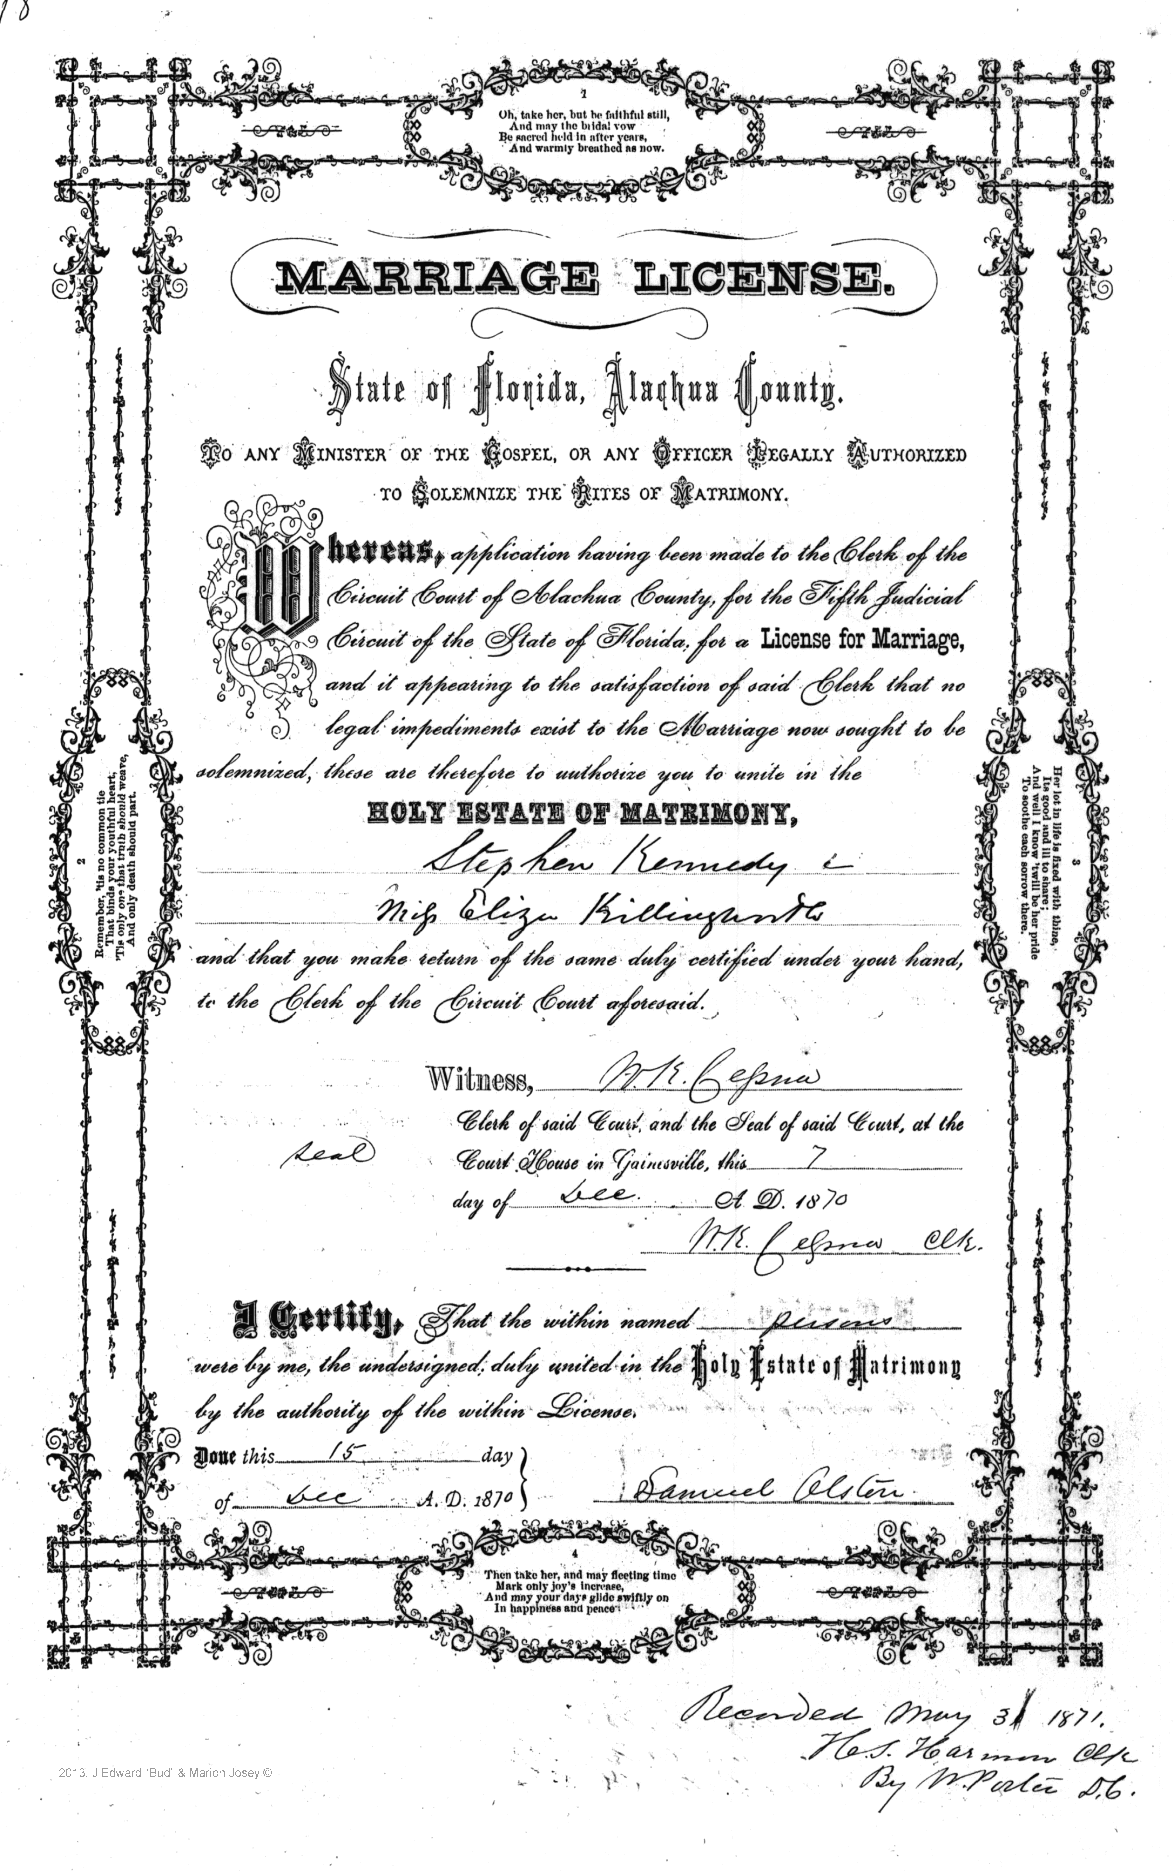 18
1
Oh, take her, but be faithful still,
And may the bridal vow
Be sacred held in after years,
And warmly breathed as now.
MARRIAGE LICENSE.
State of Florida, Alachua County.
TO ANY MINISTER OF THE GOSPEL, OR ANY OFFICER LEGALLY AUTHORIZED
TO SOLEMNIZE THE RITES OF MATRIMONY.
Whereas, application having been made to the Clerk of the
Circuit Court of Alachua County, for the Fifth Judicial
Circuit of the State of Florida, for a License for Marriage,
and it appearing to the satisfaction of said Clerk that no
legal impediments exist to the Marriage now sought to be
solemnized, these are therefore to authorize you to unite in the
HOLY ESTATE OF MATRIMONY,
Stephen Kennedy &
Miss Eliza Killingsworth
and that you make return of the same duly certified under your hand,
to the Clerk of the Circuit Court aforesaid.
2
Remember, 'tis no common tie
That binds your youthful heart,
'Tis only one that truth should weave,
And only death should part.
3
Her lot in life is fixed with thine,
Its good and ill to share;
And well I know 'twill be her pride
To soothe each sorrow there.
Witness, W.K. Cessna
Clerk of said Court, and the Seal of said Court, at the
seal
Court House in Gainesville, this 7
day of Dec. A. D. 1870
W.K. Cessna Clk.
I Certify, That the within named persons
were by me, the undersigned, duly united in the Holy Estate of Matrimony
by the authority of the within License.
Done this 15 day
of Dec A. D. 1870
Samuel Olsten
4
Then take her, and may fleeting time
Mark only joy's increase,
And may your days glide swiftly on
In happiness and peace.
Recorded May 31 1871.
H.S. Harmon Clk
By W. Porter D.C.
2013, J Edward 'Bud' & Marion Josey ©